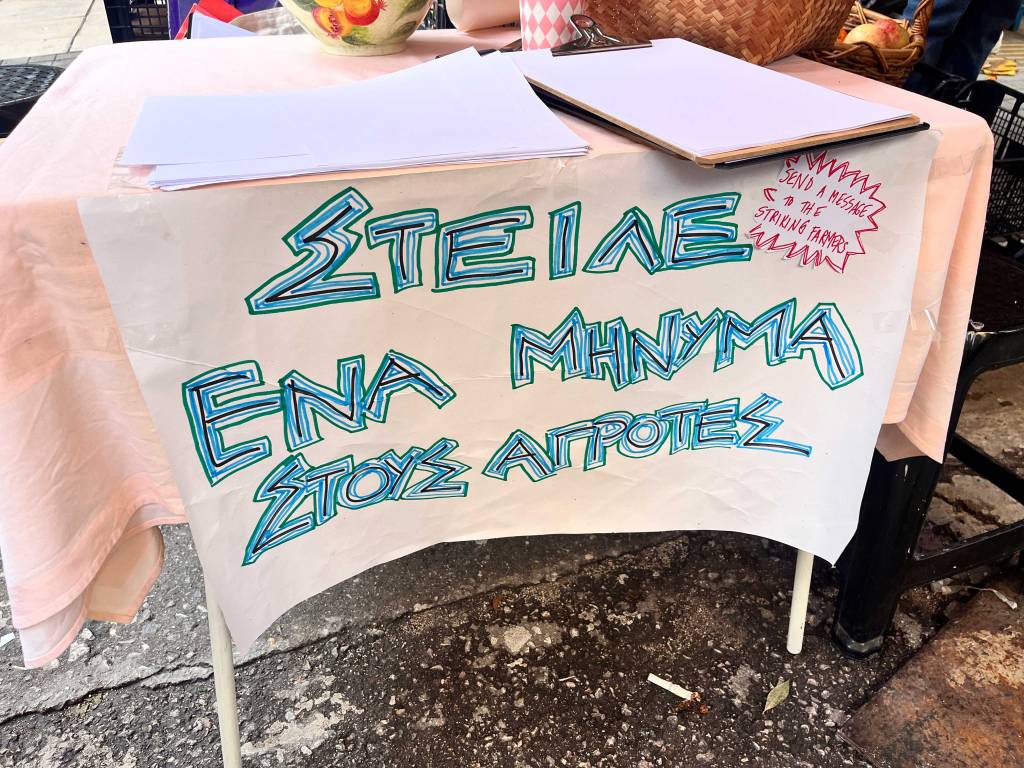 ΣΤΕΙΛΕ
ΕΝΑ ΜΗΝΥΜΑ
ΣΤΟΥΣ ΑΓΡΟΤΕΣ
SEND A MESSAGE
TO THE
STRIKING FARMERS